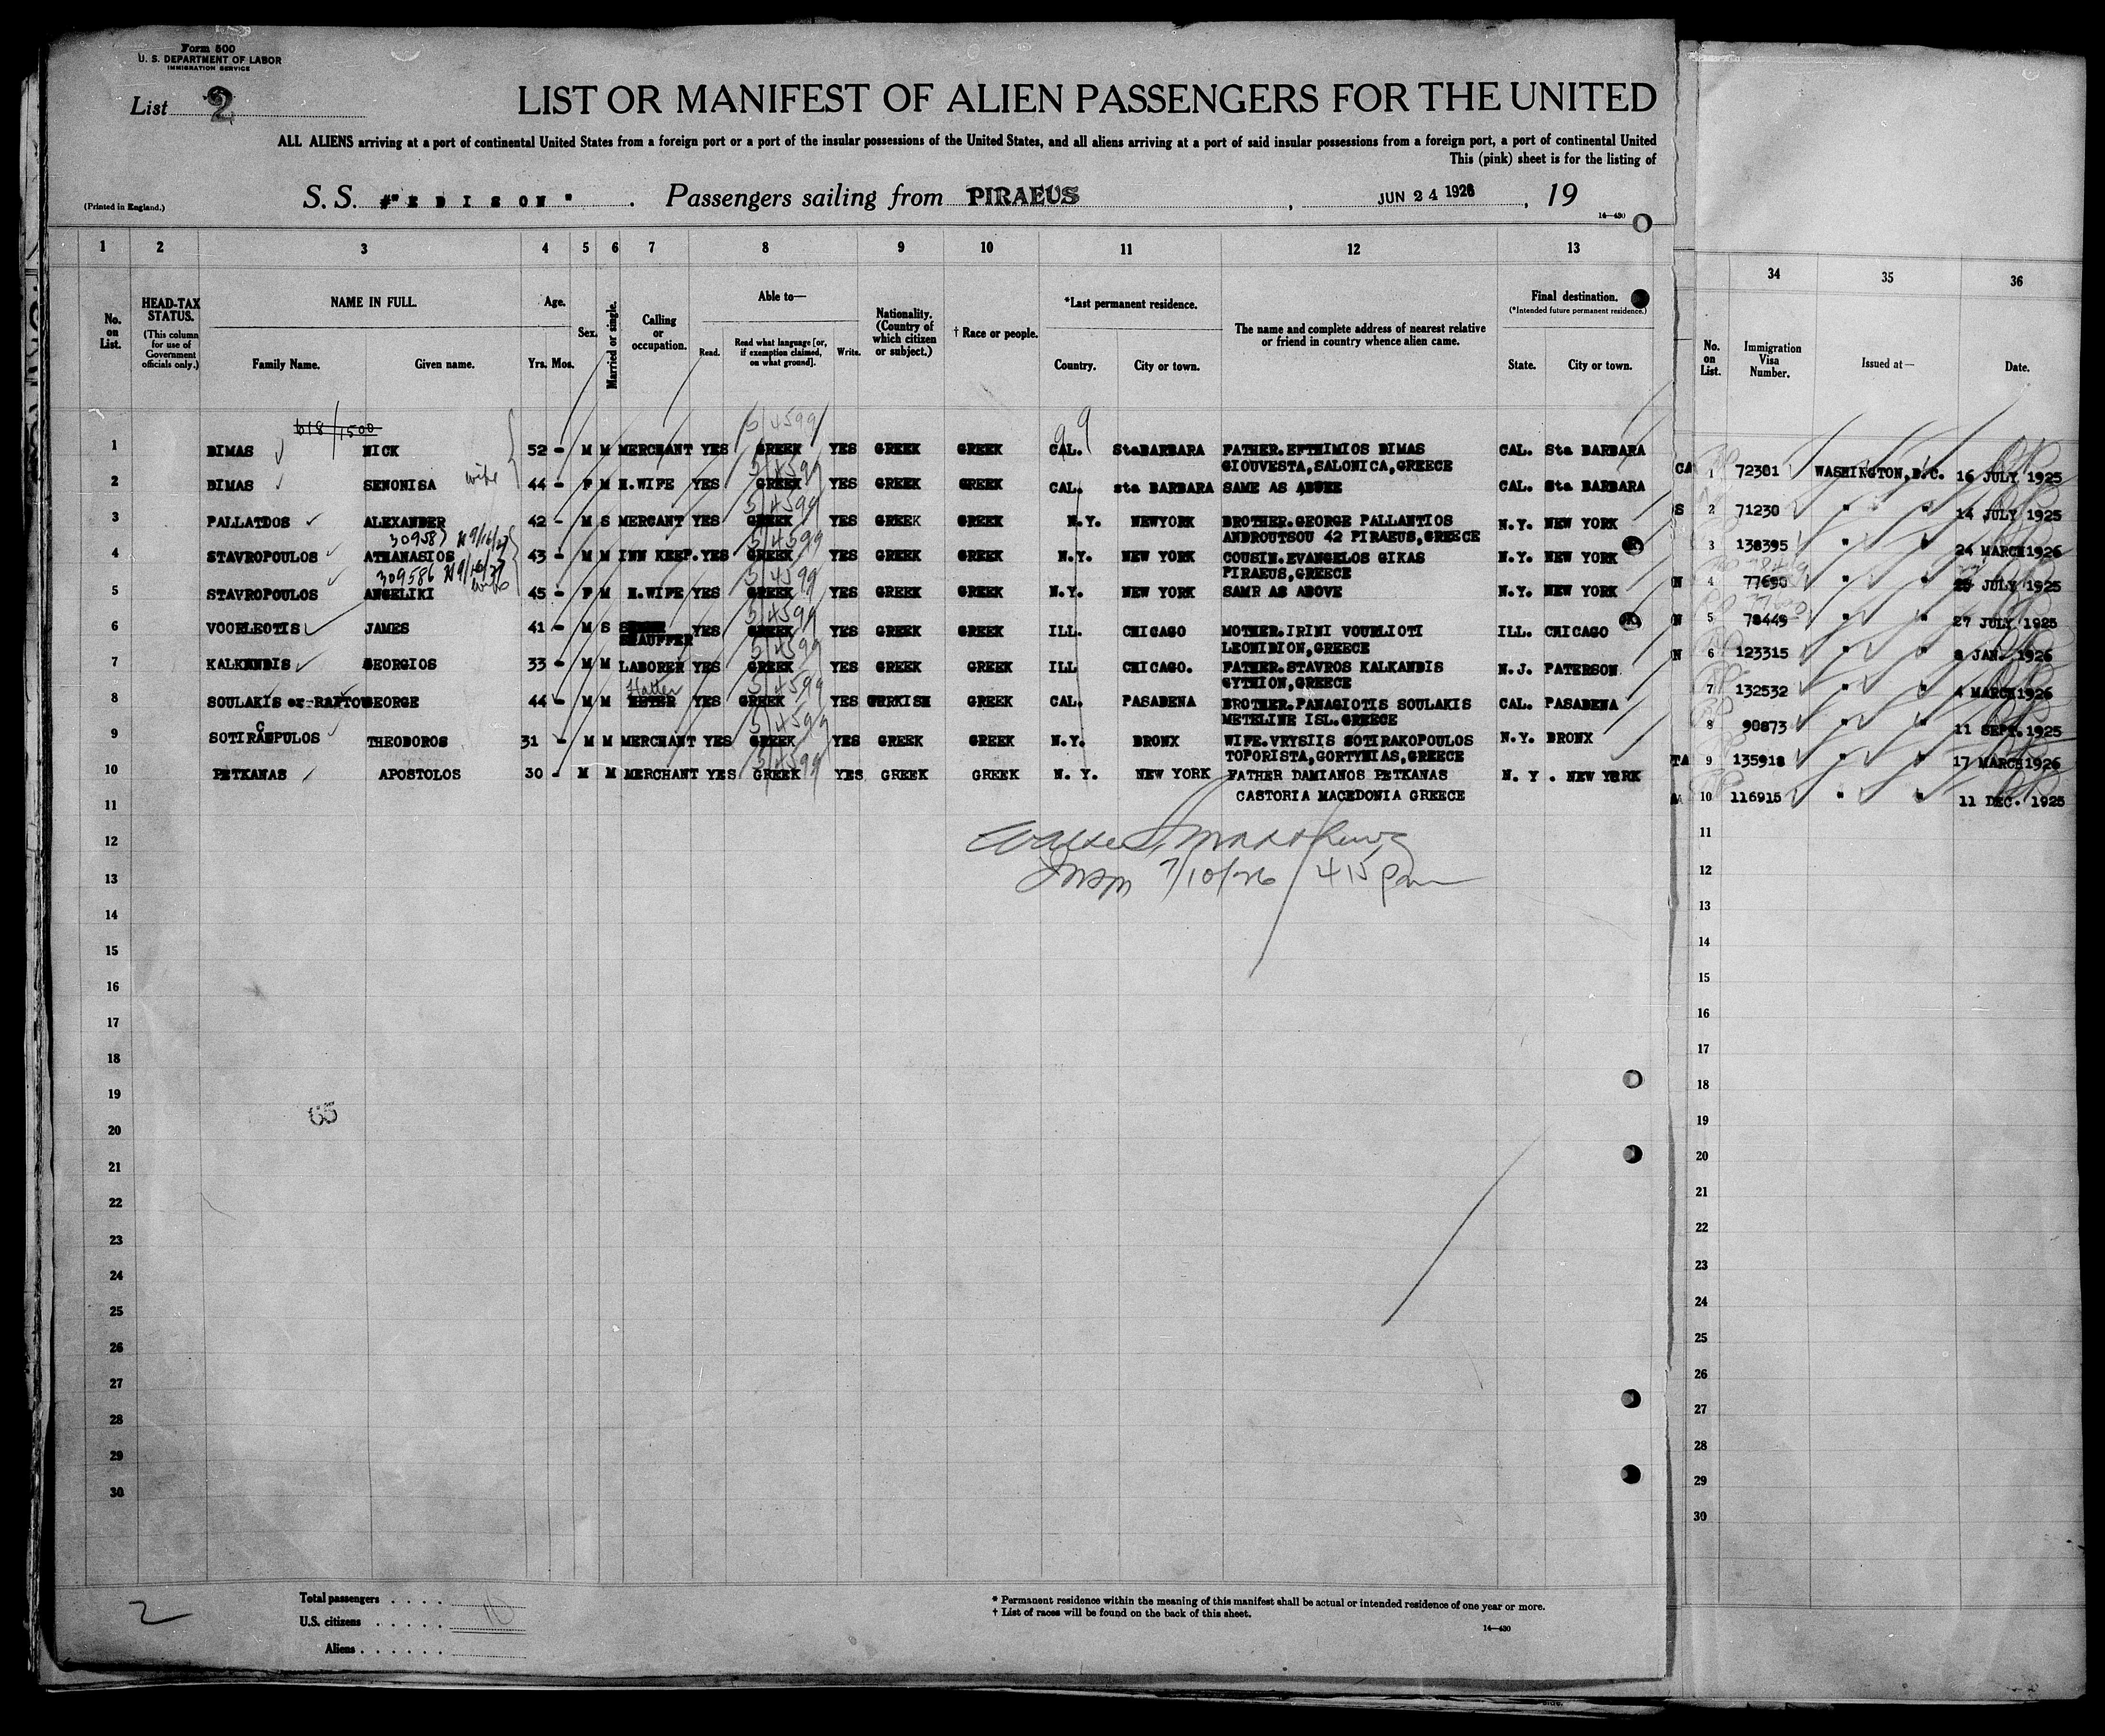 Form 500
U. S. DEPARTMENT OF LABOR
IMMIGRATION SERVICE
List 2
LIST OR MANIFEST OF ALIEN PASSENGERS FOR THE UNITED
ALL ALIENS arriving at a port of continental United States from a foreign port or a port of the insular possessions of the United States, and all aliens arriving at a port of said insular possessions from a foreign port, a port of continental United
This (pink) sheet is for the listing of
(Printed in England.)
S. S. "EDISON" . Passengers sailing from PIRAEUS , JUN 24 1926 , 19
14—430
1 2 3 4 5 6 7 8 9 10 11 12 13
34 35 36
No. on List.
HEAD-TAX STATUS.
(This column for use of Government officials only.)
NAME IN FULL.
Family Name. Given name.
Age.
Yrs. Mos.
Sex.
Married or single.
Calling or occupation.
Able to—
Read. Read what language [or, if exemption claimed, on what ground]. Write.
Nationality. (Country of which citizen or subject.)
† Race or people.
*Last permanent residence.
Country. City or town.
The name and complete address of nearest relative or friend in country whence alien came.
Final destination.
(*Intended future permanent residence.)
State. City or town.
No. on List.
Immigration Visa Number.
Issued at—
Date.
618/1500
1 DIMAS NICK 52 - M M MERCHANT YES GREEK YES GREEK GREEK CAL. StaBARBARA FATHER.EFTHIMIOS DIMAS CAL. Sta BARBARA
GIOUVESTA,SALONICA,GREECE
1 72301 WASHINGTON,D.C. 16 JULY 1925
wife
2 DIMAS SENONISA 44 - F M H.WIFE YES GREEK YES GREEK GREEK CAL. sta BARBARA SAME AS ABOVE CAL. Sta BARBARA
2 71230 " " 14 JULY 1925
3 PALLATDOS ALEXANDER 42 - M S MERCANT YES GREEK YES GREEK GREEK N.Y. NEWYORK BROTHER.GEORGE PALLANTIOS N.Y. NEW YORK
ANDROUTSOU 42 PIRAEUS,GREECE
3 138395 " " 24 MARCH1926
4 STAVROPOULOS ATHANASIOS 43 - M M INN KEEP. YES GREEK YES GREEK GREEK N.Y. NEW YORK COUSIN.EVANGELOS GIKAS N.Y. NEW YORK
PIRAEUS,GREECE
4 77650 " " JULY 1925
309586
5 STAVROPOULOS ANGELIKI 45 - F M H.WIFE YES GREEK YES GREEK GREEK N.Y. NEW YORK SAMR AS ABOVE N.Y. NEW YORK
5 78449 " " 27 JULY 1925
6 VOORLEOTIS JAMES 41 - M S SHAUFFER YES GREEK YES GREEK GREEK ILL. CHICAGO MOTHER.IRINI VOURLIOTI ILL. CHICAGO
LEONIDION,GREECE
6 123315 " " 8 JAN. 1926
7 KALKANDIS GEORGIOS 33 - M M LABORER YES GREEK YES GREEK GREEK ILL CHICAGO. FATHER.STAVROS KALKANDIS N.J. PATERSON
GYTHION,GREECE
7 132532 " " 4 MARCH1926
Hatter
8 SOULAKIS or-RAPTOU GEORGE 44 - M M YES GREEK YES TURKISH GREEK CAL. PASADENA BROTHER.PANAGIOTIS SOULAKIS CAL. PASADENA
METELINE ISL.GREECE
8 90873 " " 11 SEPT.1925
9 SOTIRACPULOS THEODOROS 31 - M M MERCHANT YES GREEK YES GREEK GREEK N.Y. BRONX WIFE.VRYSIIS SOTIRAKOPOULOS N.Y. BRONX
TOPORISTA,GORTYNIAS,GREECE
9 135918 " " 17 MARCH1926
10 PETKANAS APOSTOLOS 30 - M M MERCHANT YES GREEK YES GREEK GREEK N. Y. NEW YORK FATHER DAMIANOS PETKANAS N. Y . NEW YORK
CASTORIA MACEDONIA GREECE
10 116915 " " 11 DEC. 1925
11 11
12 Matthews 12
13 Insp 7/10/26 415 Pm 13
14 14
15 15
16 16
17 17
18 18
19 19
65
20 20
21 21
22 22
23 23
24 24
25 25
26 26
27 27
28 28
29 29
30 30
2
Total passengers . . . . 10
U.S. citizens . . . . .
Aliens . . . . . .
* Permanent residence within the meaning of this manifest shall be actual or intended residence of one year or more.
† List of races will be found on the back of this sheet.
14—430